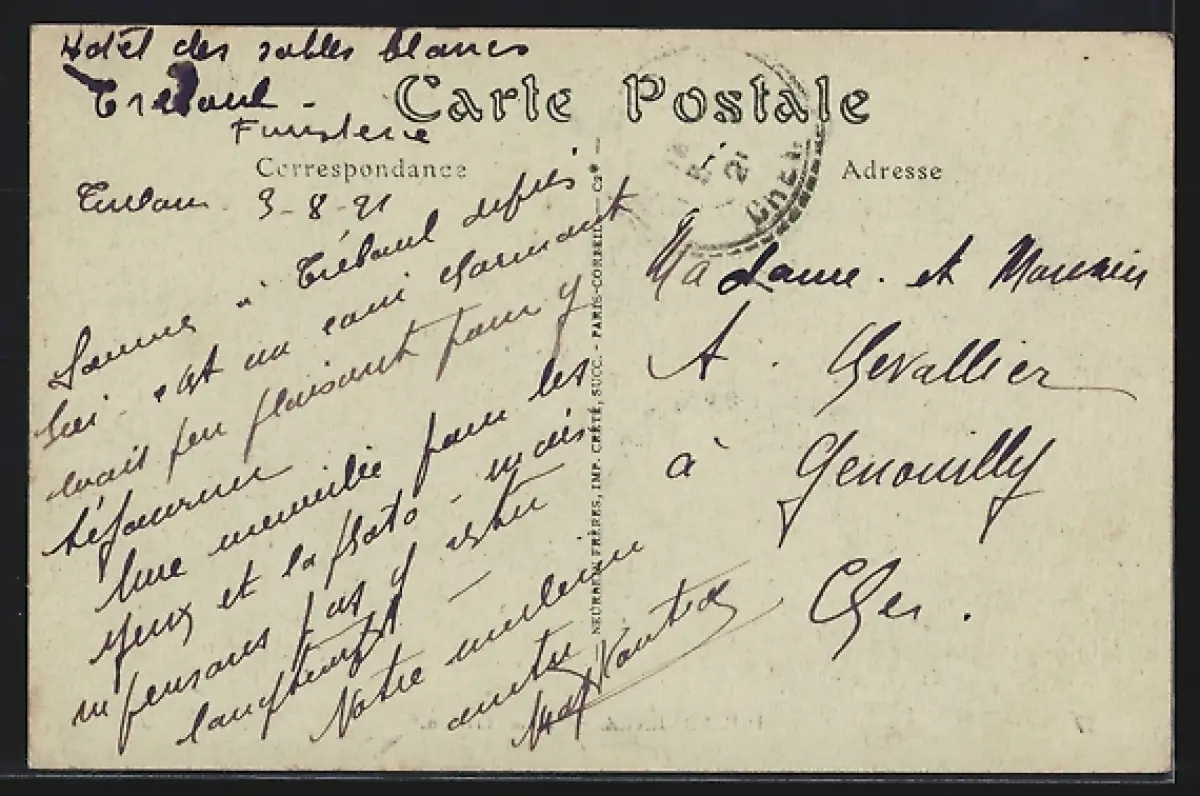 Hotel des sables blancs
Treboul -
Finistere
Carte Postale
Correspondance
Adresse
Treboul 3-8-21
CHER
21
Sommes à Tréboul depuis
hier c'est un coin charmant
mais peu plaisant pour y
séjourner
Une merveille pour les
yeux et la photo - mais
ne pensons pas y rester
longtemps -
Notre meilleure
amitié
Madame et Monsieur
A. Chevallier
à Genouilly
Cher.
NEURDEIN FRÈRES, IMP. CRÉTÉ, SUCC. - PARIS-CORBEIL - C2*